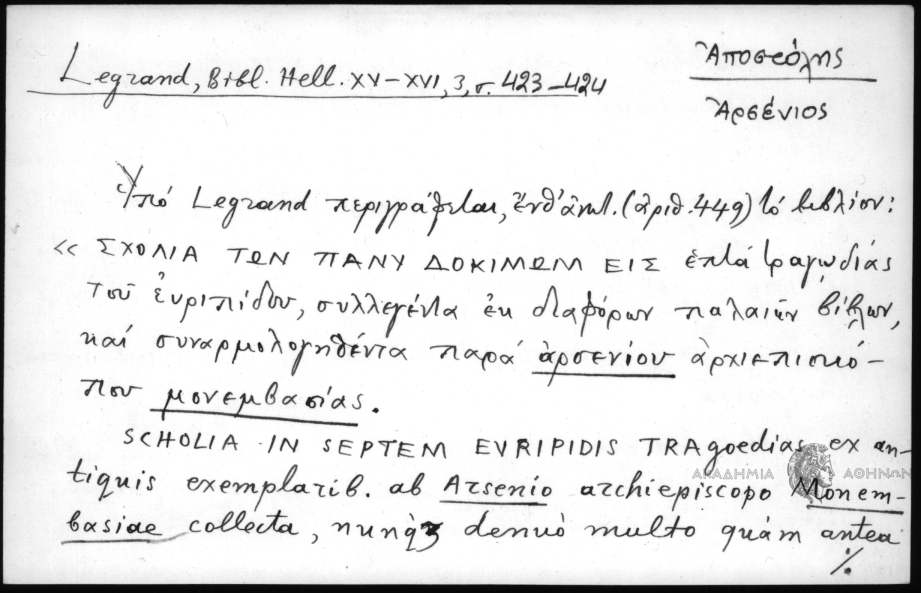 Legrand, Bibl. Hell. XV–XVI, 3, σ. 423–424
Ἀποστόλης
Ἀρσένιος
Ὑπό Legrand περιγράφεται, ἐνθ' ἀνωτ. (ἀριθ. 449) τό βιβλίον:
«ΣΧΟΛΙΑ ΤΩΝ ΠΑΝΥ ΔΟΚΙΜΩΝ ΕΙΣ ἑπτά τραγῳδίας
τοῦ ἐυριπίδου, συλλεγέντα ἐκ διαφόρων παλαιῶν βίβλων,
καί συναρμολογηθέντα παρά ἀρσενίου ἀρχιεπισκό-
που μονεμβασίας.
SCHOLIA IN SEPTEM EVRIPIDIS TRAgoedias ex an-
tiquis exemplarib. ab Arsenio archiepiscopo Monem-
basiae collecta, nunqз denuò multo quàm antea
./.
ΑΚΑΔΗΜΙΑ ΑΘΗΝΩΝ